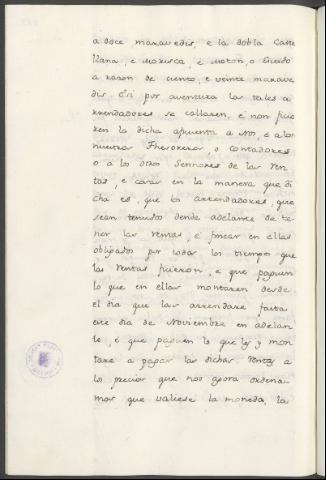 a doce maravedis, e la dobla Caste
llana, e Morisca, e Moton, o Escudo
a razon de ciento, e veinte marave
dis. E si por aventura las tales a
rrendadores se callaren, e non fisie
ren la dicha afruenta a Nos, e a los
nuestros Thesoreros, o Contadores
o a los otros Sennores de las Ren
tas, e casas en la manera que di
cha es, que los arrendadores, que
sean tenudos dende adelante de te
ner las rentas, e fincar en ellas
obligados por todos los tiempos que
las rentas ficieron, e que paguen
lo que en ellas montaren desde
el dia que las arrendare fasta
este dia de Noviembre en adelan
te, e que paguen lo que ly y mon
tare a pagar las dichas rentas a
los precios que nos agora ordena
mos que valiese la moneda, la